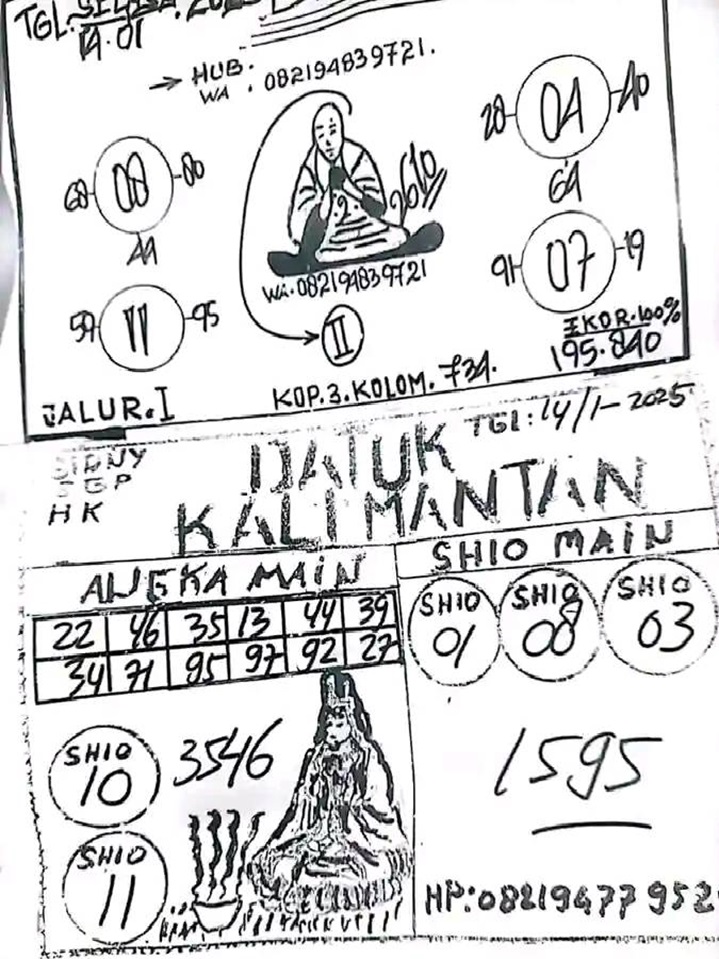 TGL. SELASA. 2025
14.01
→ HUB.
WA : 082194839721.
08
68
80
44
04
28
40
64
2.
2610
WA.082194839721
11
59
95
II
07
91
19
EKOR.100%
195.840
JALUR.I
KOP.3.KOLOM.734.
TGL:14/1-2025
SIDNY
SGP
HK
DATUK
KALIMANTAN
ANGKA MAIN
22 46 35 13 44 39
34 71 95 97 92 27
SHIO MAIN
SHIO 01
SHIO 08
SHIO 03
SHIO 10
3546
SHIO 11
1595
HP:0821947795